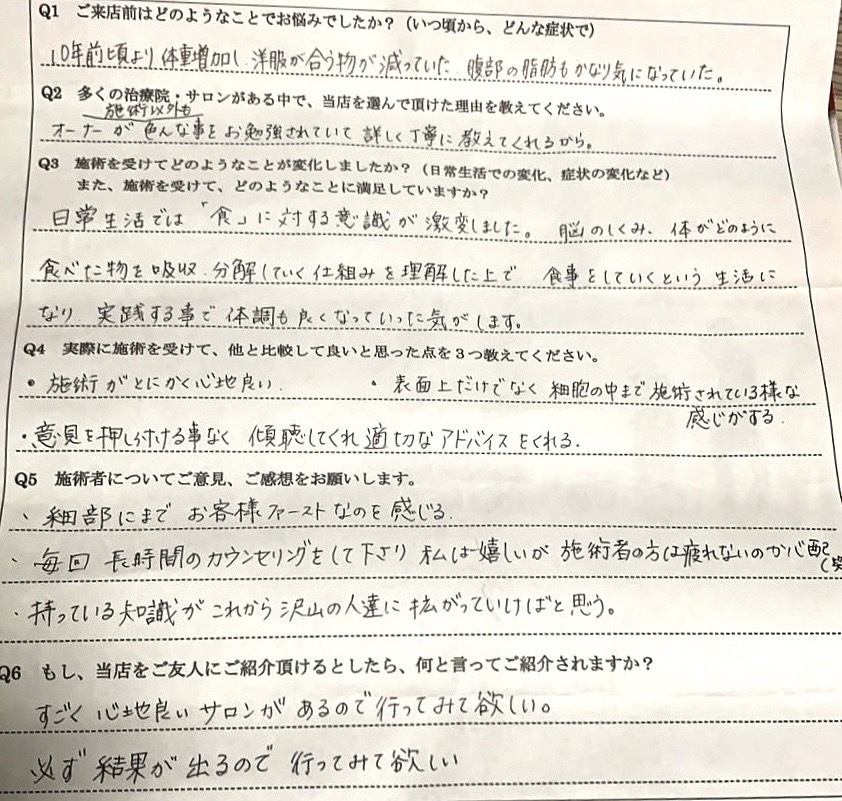 Q1 ご来店前はどのようなことでお悩みでしたか？（いつ頃から、どんな症状で）
10年前頃より体重増加し、洋服が合う物が減っていた。腹部の脂肪もかなり気になっていた。
Q2 多くの治療院・サロンがある中で、当店を選んで頂けた理由を教えてください。
施術以外も
オーナーが色んな事をお勉強されていて詳しく丁寧に教えてくれるから。
Q3 施術を受けてどのようなことが変化しましたか？（日常生活での変化、症状の変化など）
また、施術を受けて、どのようなことに満足していますか？
日常生活では「食」に対する意識が激変しました。脳のしくみ、体がどのように
食べた物を吸収、分解していく仕組みを理解した上で 食事をしていくという生活に
なり 実践する事で体調も良くなっていった気がします。
Q4 実際に施術を受けて、他と比較して良いと思った点を３つ教えてください。
・施術がとにかく心地良い。 ・表面上だけでなく細胞の中まで施術されている様な
感じがする。
・意見を押し付ける事なく 傾聴してくれ適切なアドバイスをくれる。
Q5 施術者についてご意見、ご感想をお願いします。
、細部にまでお客様ファーストなのを感じる。
、毎回 長時間のカウンセリングをして下さり 私は嬉しいが 施術者の方は疲れないのか心配
(笑
・持っている知識がこれから沢山の人達に拡がっていけばと思う。
Q6 もし、当店をご友人にご紹介頂けるとしたら、何と言ってご紹介されますか？
すごく心地良いサロンがあるので行ってみて欲しい。
必ず結果が出るので 行ってみて欲しい